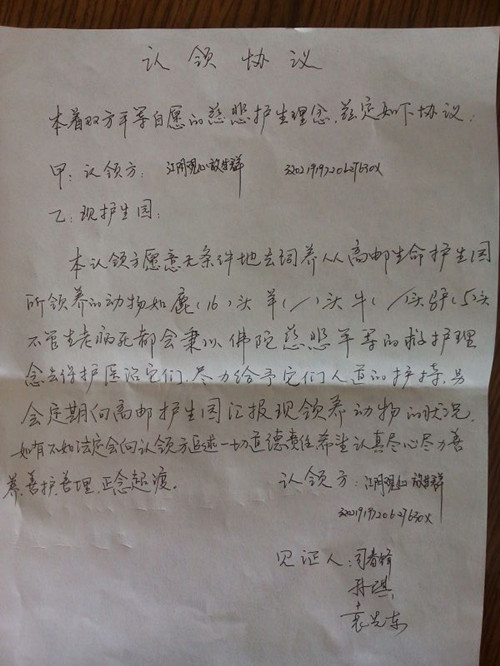 认领协议
本着双方平等自愿的慈悲护生理念,兹定如下协议:
甲:认领方: 放生群
乙:现护生园:
本认领方愿意无条件地去饲养从高邮生命护生园
所领养的动物如鹿(16)头羊(/)头牛(/)头驴(5)头
不管生老病死都会秉以佛陀慈悲平等的救护理
念去保护医治它们.尽力给予它们人道的护持.另
会定期向高邮护生园汇报现领养动物的状况.
如有不如法定会向认领方追述一切道德责任希望认真尽心尽力善
养.善护善理.正念超度.
认领方: 放生群
见证人: